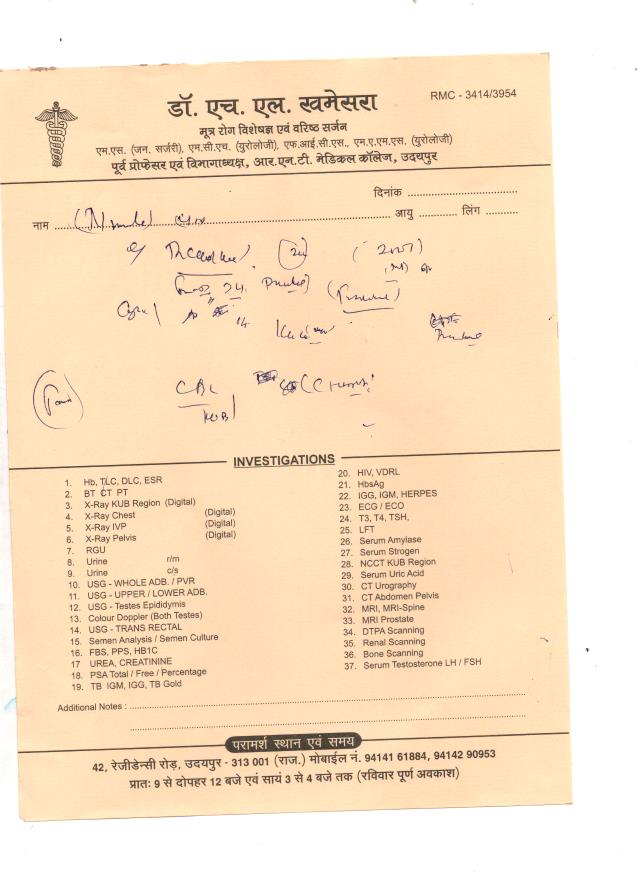 RMC - 3414/3954
डॉ. एच. एल. खमेसरा
मूत्र रोग विशेषज्ञ एवं वरिष्ठ सर्जन
एम.एस. (जन. सर्जरी), एम.सी.एच. (युरोलोजी), एफ.आई.सी.एस., एम.ए.एम.एस. (युरोलोजी)
पूर्व प्रोफेसर एवं विभागाध्यक्ष, आर.एन.टी. मेडिकल कॉलेज, उदयपुर
दिनांक
नाम आयु लिंग
CBC
INVESTIGATIONS
1. Hb, TLC, DLC, ESR
2. BT CT PT
3. X-Ray KUB Region (Digital)
4. X-Ray Chest (Digital)
5. X-Ray IVP (Digital)
6. X-Ray Pelvis (Digital)
7. RGU
8. Urine r/m
9. Urine c/s
10. USG - WHOLE ADB. / PVR
11. USG - UPPER / LOWER ADB.
12. USG - Testes Epididymis
13. Colour Doppier (Both Testes)
14. USG - TRANS RECTAL
15. Semen Analysis / Semen Culture
16. FBS, PPS, HB1C
17 UREA, CREATININE
18. PSA Total / Free / Percentage
19. TB IGM, IGG, TB Gold
20. HIV, VDRL
21. HbsAg
22. IGG, IGM, HERPES
23. ECG / ECO
24. T3, T4, TSH,
25. LFT
26. Serum Amylase
27. Serum Strogen
28. NCCT KUB Region
29. Serum Uric Acid
30. CT Urography
31. CT Abdomen Pelvis
32. MRI, MRI-Spine
33. MRI Prostate
34. DTPA Scanning
35. Renal Scanning
36. Bone Scanning
37. Serum Testosterone LH / FSH
Additional Notes :
परामर्श स्थान एवं समय
42, रेजीडेन्सी रोड़, उदयपुर - 313 001 (राज.) मोबाईल नं. 94141 61884, 94142 90953
प्रातः 9 से दोपहर 12 बजे एवं सायं 3 से 4 बजे तक (रविवार पूर्ण अवकाश)